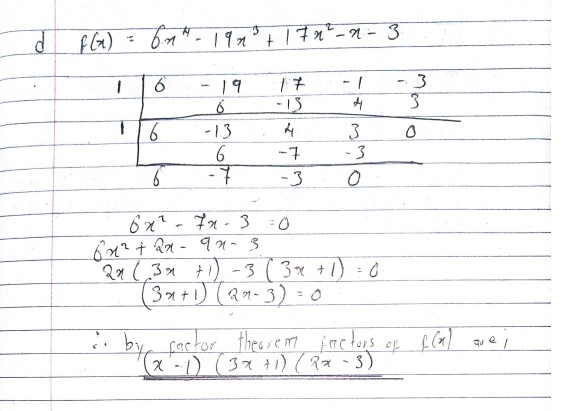 d f(x) = 6x⁴ - 19x³ + 17x² - x - 3
1 | 6 - 19 17 - 1 - 3
6 -13 4 3
1 | 6 -13 4 3 0
6 -7 -3
6 -7 -3 0
6x² - 7x - 3 = 0
6x² + 2x - 9x - 3
2x ( 3x + 1) - 3 ( 3x + 1) = 0
(3x + 1) (2x - 3) = 0
∴ by factor theorem factors of f(x) are ;
(x - 1) (3x + 1) (2x - 3)